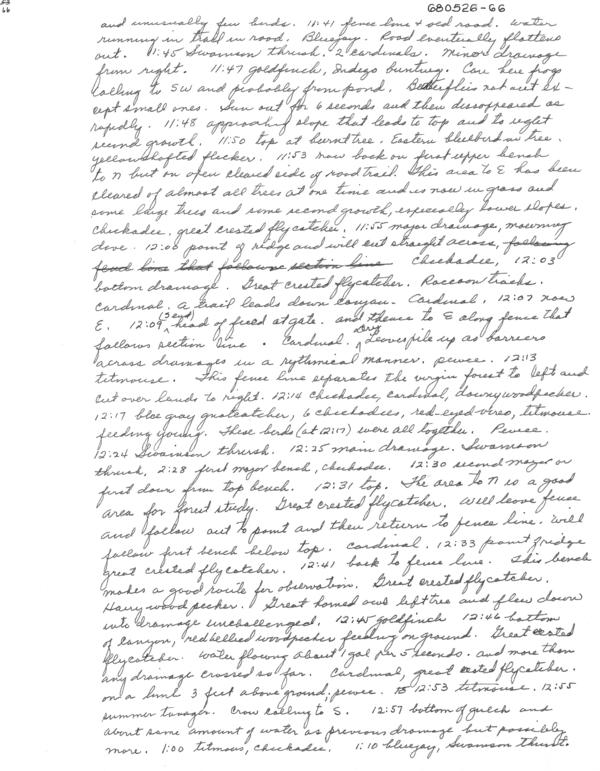 G80526-66
and unusually few birds. 11:41 fence line + old road. Water
running in trail in road. Bluejay. Road eventually flattens
out. 11:45 Swainson thrush. 2 cardinals. Minor drainage
from right. 11:47 goldfinch, Indigo bunting. Can hear frogs
calling to SW and probably from pond. Butterflies not out ex-
cept small ones. Sun out for 6 seconds and then disappeared as
rapidly. 11:48 approaching slope that leads to top and to right
second growth. 11:50 top at burnt tree. Eastern bluebird in tree.
yellowshafted flicker. 11:53 now back on first upper bench
to N but on open cleared side of road trail. This area to E has been
cleared of almost all trees at one time and is now in grass and
some large trees and some second growth, especially lower slopes.
Chickadee, great crested flycatcher. 11:55 major drainage, mourning
dove. 12:00 point of ridge and will cut straight across, following
fence line that follows section line Chickadee, 12:03
bottom drainage. Great crested flycatcher. Raccoon tracks.
Cardinal. A trail leads down canyon. Cardinal. 12:07 now
E. 12:09 head of field at gate. and thence to E along fence that
follows section line. Cardinal. Dry leaves pile up as barriers
across drainages in a rythmical manner. pewee. 12:13
titmouse. This fence line separates the virgin forest to left and
cut over lands to right. 12:14 chickadee, cardinal, downy woodpecker.
12:17 blue gray gnatcatcher, 6 chickadees, red-eyed vireo, titmouse
feeding young. These birds (at 12:17) were all together. Pewee.
12:24 Swainson thrush. 12:25 main drainage. Swainson
thrush, 2:28 first major bench, chickadee. 12:30 second major or
first down from top bench. 12:31 top. The area to N is a good
area for forest study. Great crested flycatcher. Will leave fence
and follow out to point and then return to fence line. Will
follow first bench below top. Cardinal. 12:33 point of ridge
great crested flycatcher. 12:41 back to fence line. This bench
makes a good route for observation. Great crested flycatcher.
Hairy woodpecker. Great horned owl left tree and flew down
into drainage unchallenged. 12:45 goldfinch 12:46 bottom
of canyon, redbellied woodpecker feeding on ground. Great crested
flycatcher. Water flowing about 1 gal per 5 seconds. and more than
any drainage crossed so far. Cardinal, great crested flycatcher.
on a limb 3 feet above ground, pewee. 12:53 titmouse. 12:55
summer tanager. Crow calling to S. 12:57 bottom of gulch and
about same amount of water as previous drainage but possibly
more. 1:00 titmous, chickadee. 1:10 bluejay, Swainson thrust.